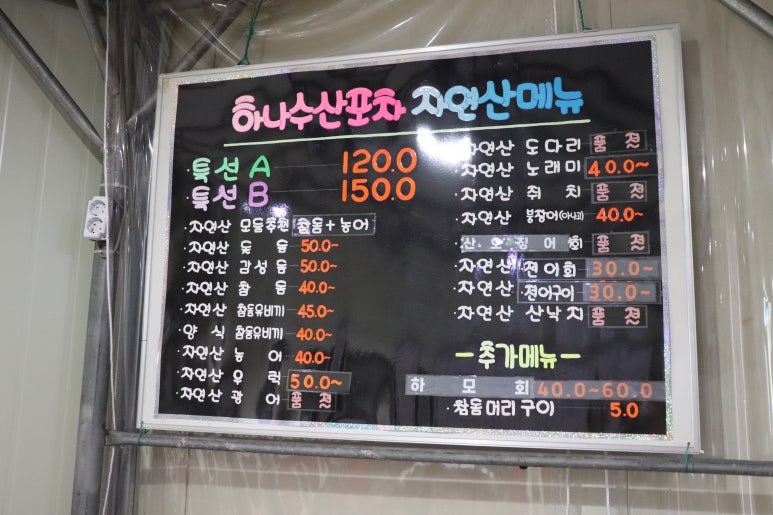 하나수산포차 자연산메뉴
특선 A 120.0
특선 B 150.0
·자연산 모듬추천 참돔+농어
·자연산 돗돔 50.0~
·자연산 감성돔 50.0~
·자연산 참돔 40.0~
·자연산 참돔유비끼 45.0~
·양식 참돔유비끼 40.0~
·자연산 농어 40.0~
·자연산 우럭 50.0~
·자연산 광어 품절
·자연산 도다리 품절
·자연산 노래미 40.0~
·자연산 쥐치 품절
·자연산 붕장어(아나고) 40.0~
·산오징어회 품절
·자연산 전어회 30.0~
·자연산 전어구이 30.0~
·자연산 산낙지 품절
-추가메뉴-
하모회 40.0~60.0
·참돔머리구이 5.0